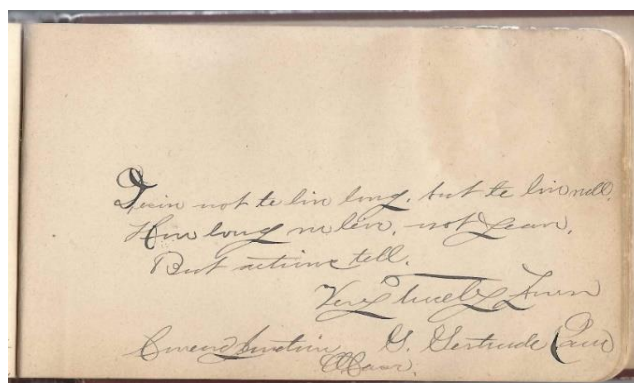 Desire not to live long, but to live well.
How long we live, not years,
But actions tell.
Very truly Yours
G. Gertrude
Mass.